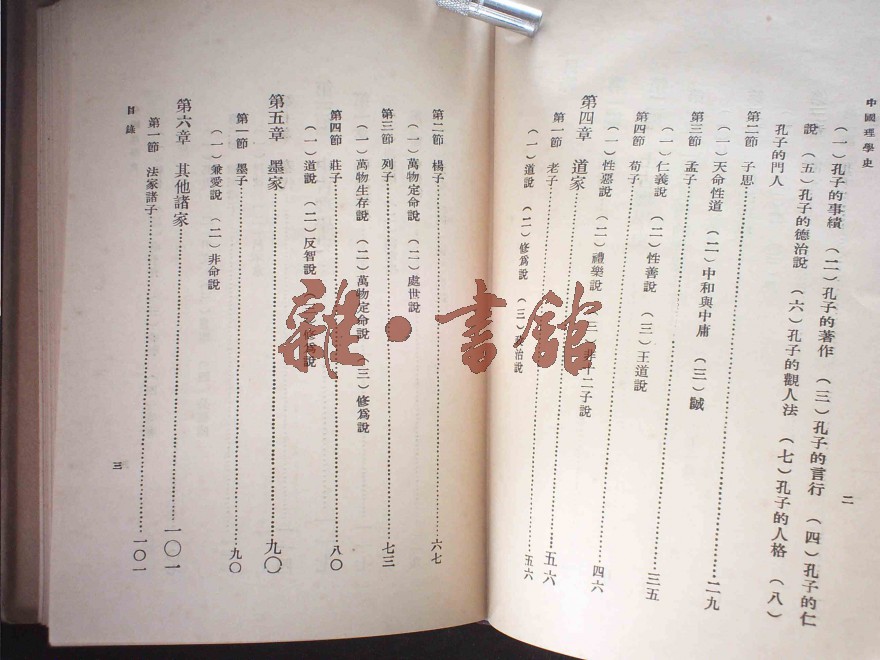 中國理學史
二
（一）孔子的事績　（二）孔子的著作　（三）孔子的言行　（四）孔子的仁
說　（五）孔子的德治說　（六）孔子的觀人法　（七）孔子的人格　（八）
孔子的門人
第二節　子思……二九
（一）天命性道　（二）中和與中庸　（三）誠
第三節　孟子……三五
（一）仁義說　（二）性善說　（三）王道說
第四節　荀子……四六
（一）性惡說　（二）禮樂說　（三）非十二子說
第四章　道家……五六
第一節　老子……五六
（一）道說　（二）修爲說　（三）政治說
第二節　楊子……六七
（一）萬物定命說　（二）處世說
第三節　列子……七三
（一）萬物生存說　（二）萬物定命說　（三）修爲說
第四節　莊子……八〇
（一）道說　（二）反智說　（三）修爲說
第五章　墨家……九〇
第一節　墨子……九〇
（一）兼愛說　（二）非命說
第六章　其他諸家……一〇一
第一節　法家諸子……一〇一
目錄
三
雜·書館